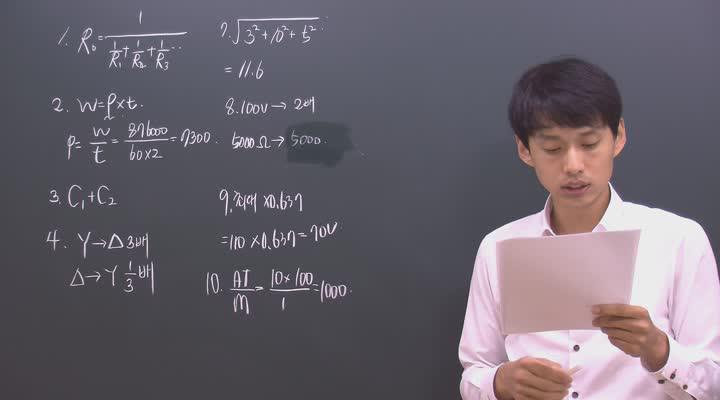 1. R₀ = 1 / (1/R₁ + 1/R₂ + 1/R₃ ...
2. W = P × t.
P = W/t = 876000/(60×2) = 7300.
3. C₁ + C₂
4. Y → Δ 3배
Δ → Y 1/3 배
7. √(3² + 10² + 5²)
= 11.6
8. 100V → 2배
5000Ω → 5000.
9. 최대 × 0.637
= 110 × 0.637 = 70V
10. AT/m = (10×100)/1 = 1000.